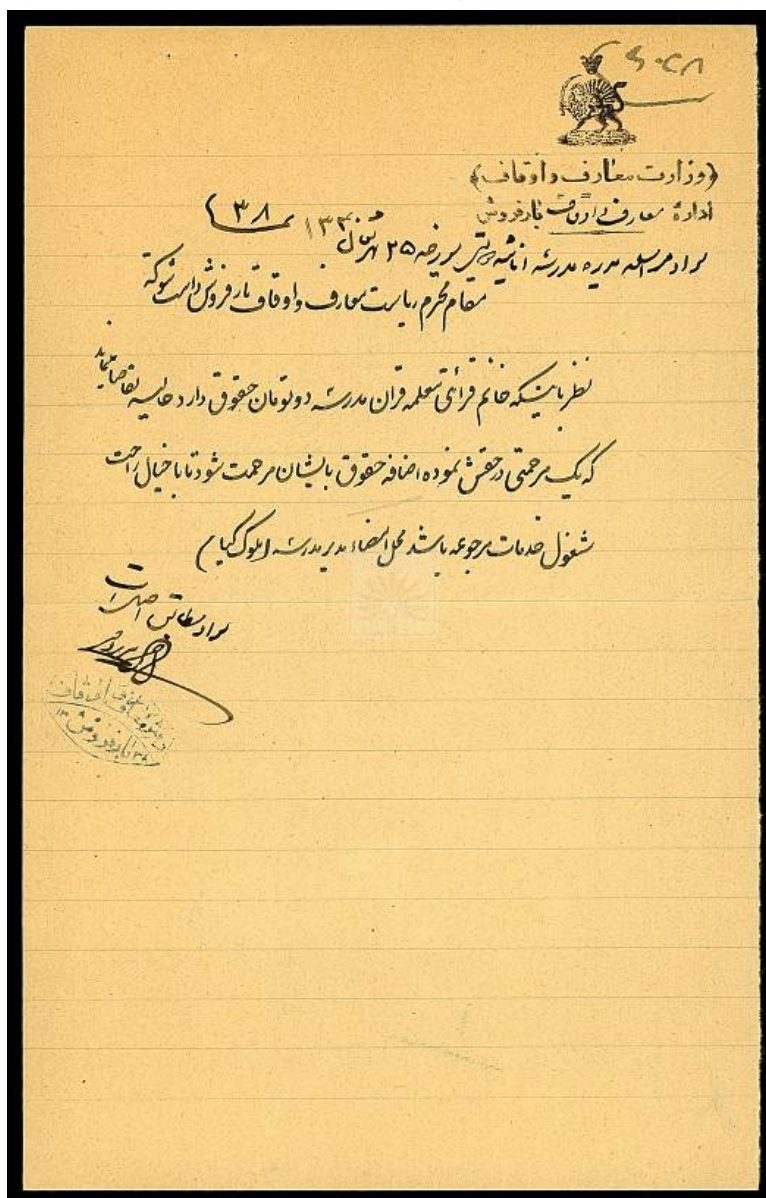 ۲۰۲۸
(وزارت معارف و اوقاف)
ادارهٔ معارف و اوقاف بارفروش
سواد مراسله مدیره مدرسه اناثیه دولتی مورخه ۲۵ سال ۱۳۰ نمره ۳۸
مقام محترم ریاست معارف و اوقاف بارفروش دامت شوکته
نظر باینکه خانم قرائی معلمه قران مدرسه دو تومان حقوق دارد حالیه تقاضا مینماید
که یک مرحمتی در حقش نموده اضافه حقوق بایشان مرحمت شود تا با خیال راحت
مشغول خدمات مرجوعه باشد محل امضاء مدیر مدرسه (ملوک کیا)
سواد مطابق اصل است
بارفروش